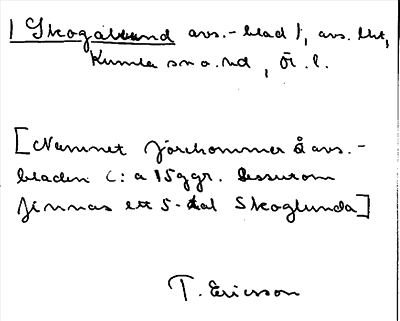 | Skogalund avs.-blad 1, avs. lht,
Kumla sn o. hd, Ör. l.
[Namnet förekommer å avs.-
bladen c:a 15 ggr. Dessutom
finnas ett 5-tal Skoglunda]
T. Ericson